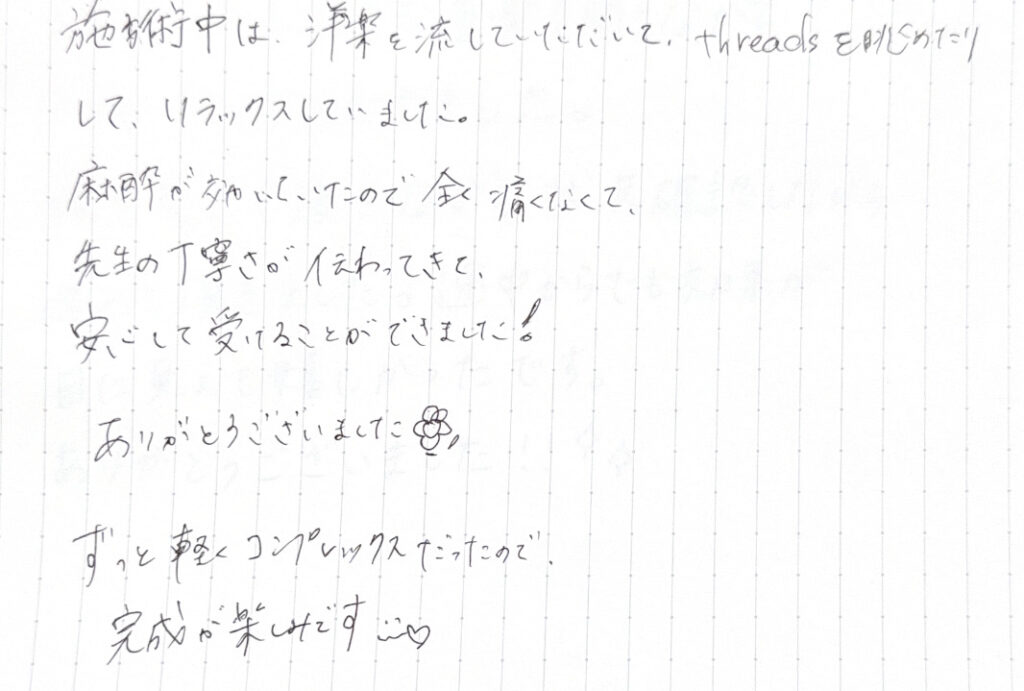 施術中は、洋楽を流していただいて、threadsを眺めたり
して、リラックスしていました。
麻酔が効いていたので全く痛くなくて、
先生の丁寧さが伝わってきて、
安心して受けることができました!
ありがとうございました
ずっと軽くコンプレックスだったので、
完成が楽しみです